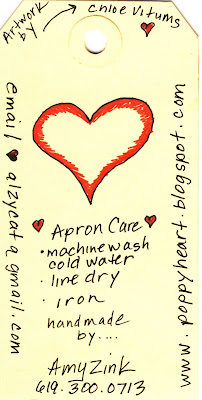 Artwork by → Chloe Vitums
email ♥ alzycat@gmail.com
www.poppyheart.blogspot.com
♥ Apron Care ♥
• machine wash
cold water
• line dry
• iron
handmade
by....
Amy Zink
619.300.0713